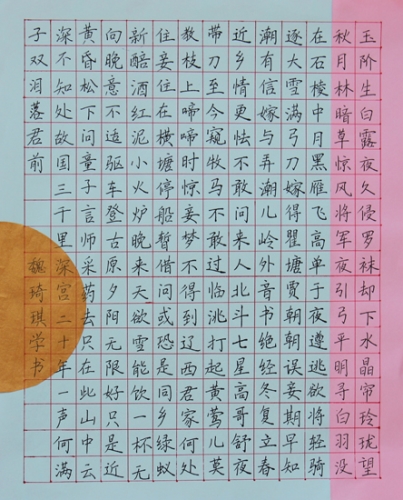 玉阶生白露夜久侵罗袜却下水晶帘玲珑望
秋月林暗草惊风将军夜引弓平明寻白羽没
在石棱中月黑雁飞高单于夜遁逃欲将轻骑
逐大雪满弓刀嫁得瞿塘贾朝朝误妾期早知
潮有信嫁与弄潮儿岭外音书绝经冬复立春
近乡情更怯不敢问来人北斗七星高哥舒夜
带刀至今窥牧马不敢过临洮打起黄莺儿莫
教枝上啼啼时惊妾梦不得到辽西君家何处
住妾住在横塘停船暂借问或恐是同乡绿蚁
新醅酒红泥小火炉晚来天欲雪能饮一杯无
向晚意不适驱车登古原夕阳无限好只是近
黄昏松下问童子言师采药去只在此山中云
深不知处故国三千里深宫二十年一声何满
子双泪落君前
魏琦琪学书